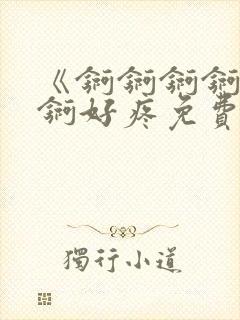 《锕锕锕锕
锕好疼免費
獨行小道